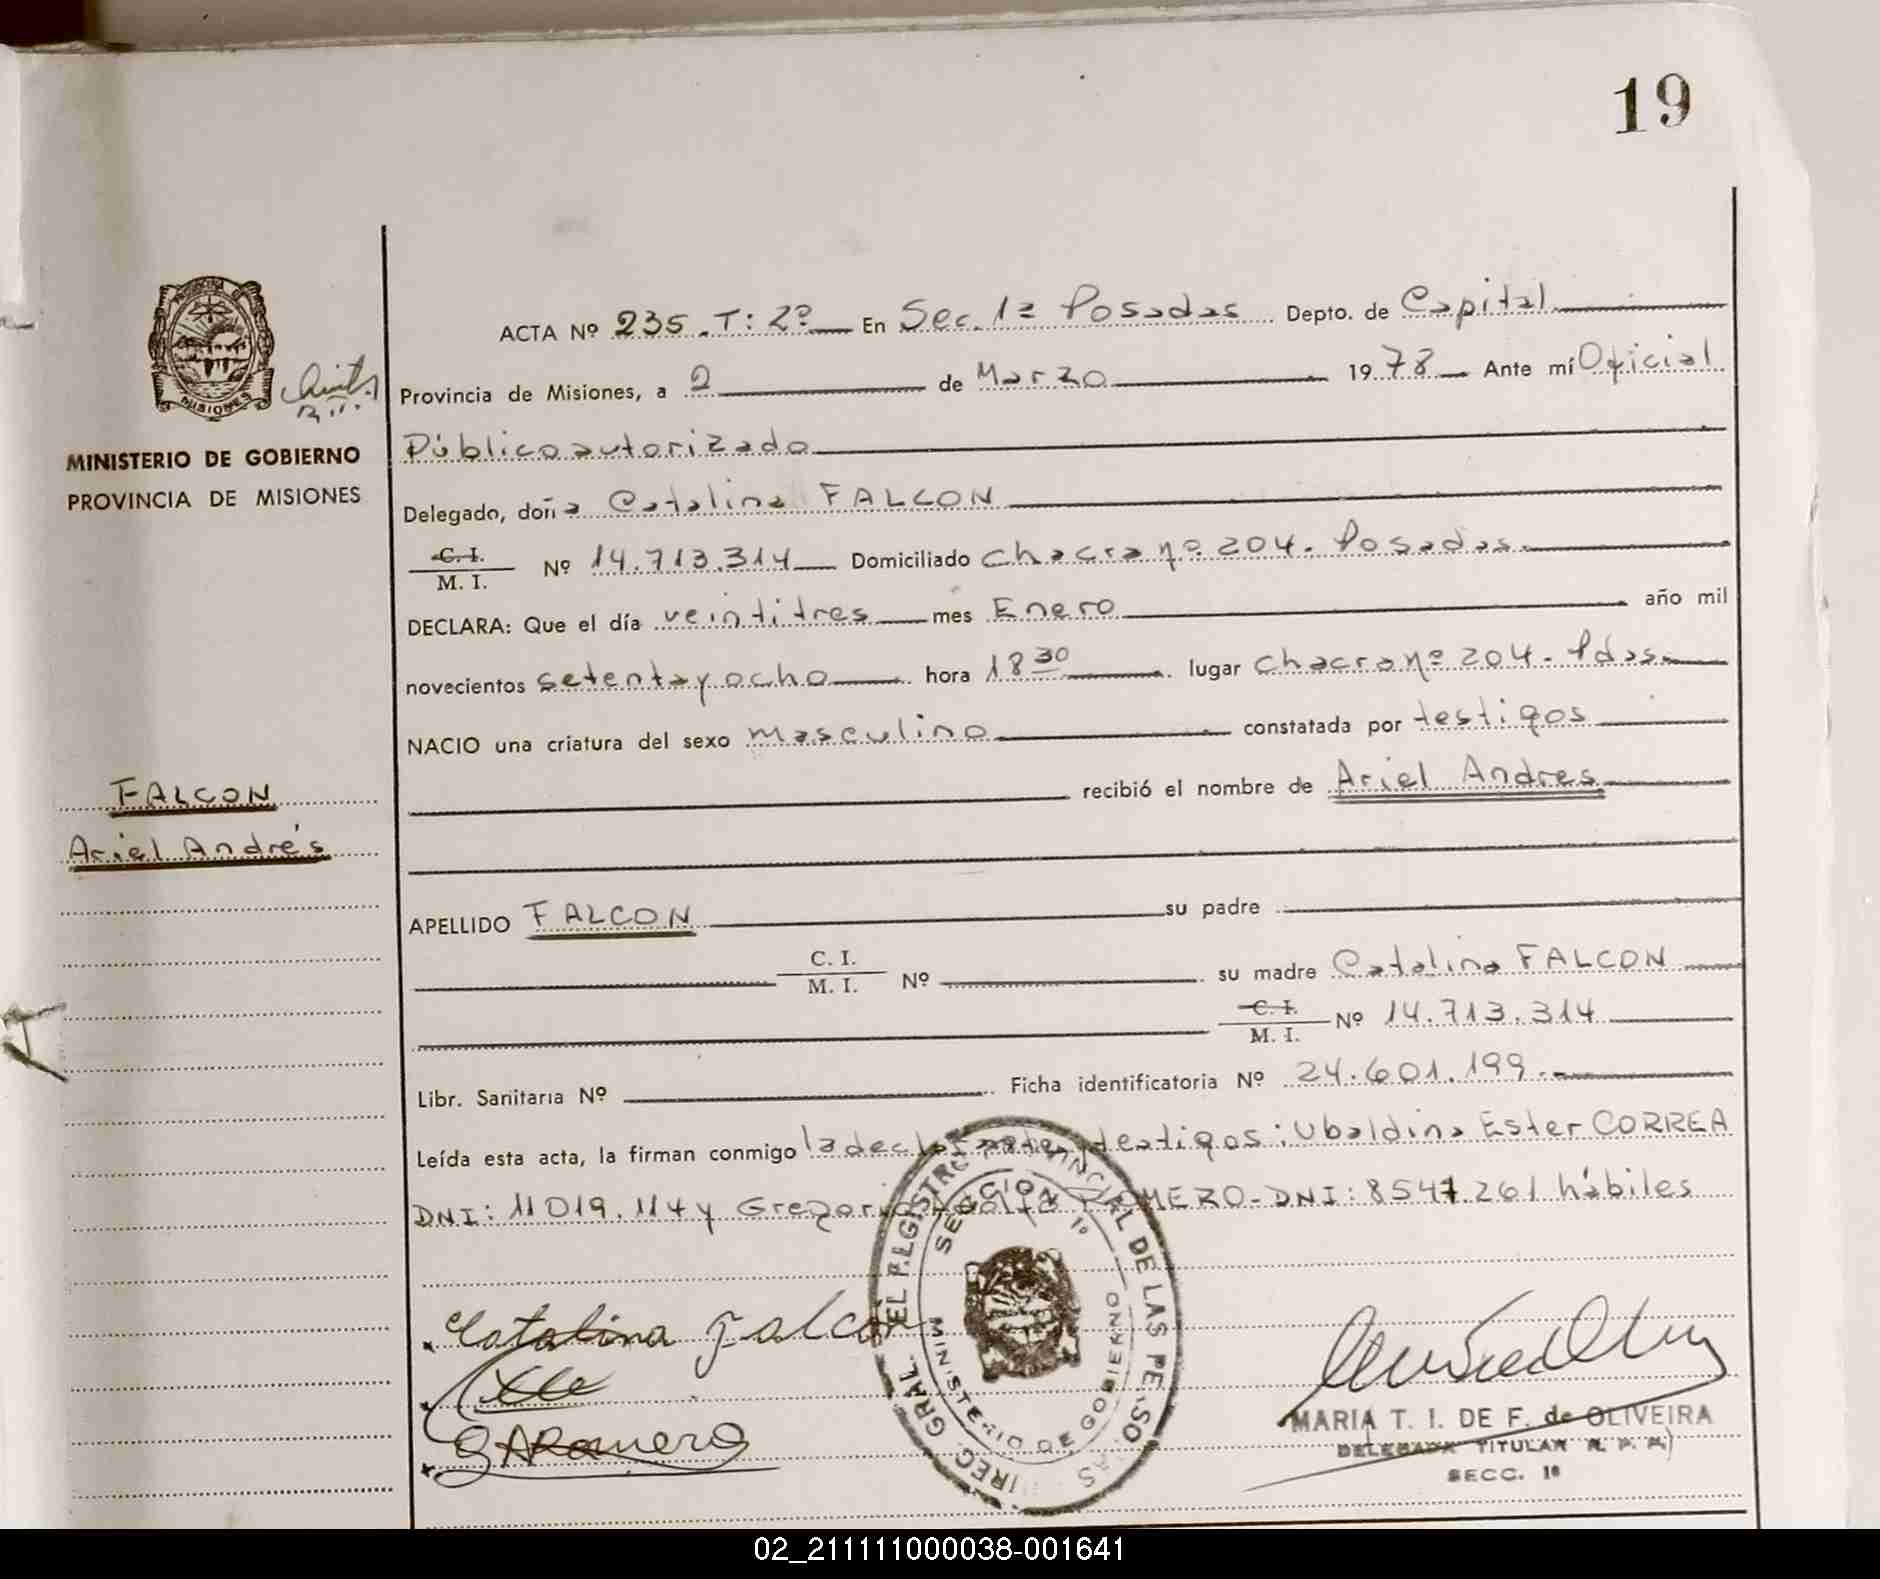 19
ACTA Nº 235. T: 2º En Sec. 1ª Posadas Depto. de Capital
Provincia de Misiones, a 2 de Marzo 1978 Ante mí Oficial
Público autorizado
MINISTERIO DE GOBIERNO
PROVINCIA DE MISIONES
Delegado, doña Catalina FALCON
C. I.
M. I. Nº 14.713.314 Domiciliado Chacra nº 204. Posadas.
DECLARA: Que el día veintitres mes Enero año mil
novecientos setenta y ocho hora 18 30 lugar Chacra nº 204. Pdas.
NACIO una criatura del sexo masculino constatada por testigos
recibió el nombre de Ariel Andres
FALCON
Ariel Andrés
APELLIDO FALCON su padre
C. I.
M. I. Nº su madre Catalina FALCON
C. I.
M. I. Nº 14.713.314
Libr. Sanitaria Nº Ficha identificatoria Nº 24.601.199.
Leída esta acta, la firman conmigo la declarante y testigos: Ubaldina Ester CORREA
DNI: 11019.114 y Gregorio ROMERO - DNI: 8547.261 hábiles
Catalina Falcon
G A Romero
DIREC. GRAL. DEL REGISTRO PROVINCIAL DE LAS PERSONAS
SECCION 1º
MINISTERIO DE GOBIERNO
PROVINCIA DE
MISIONES
MARIA T. I. DE F. de OLIVEIRA
DELEGADA TITULAR R. P. P.
SECC. 1ª
02_211111000038-001641